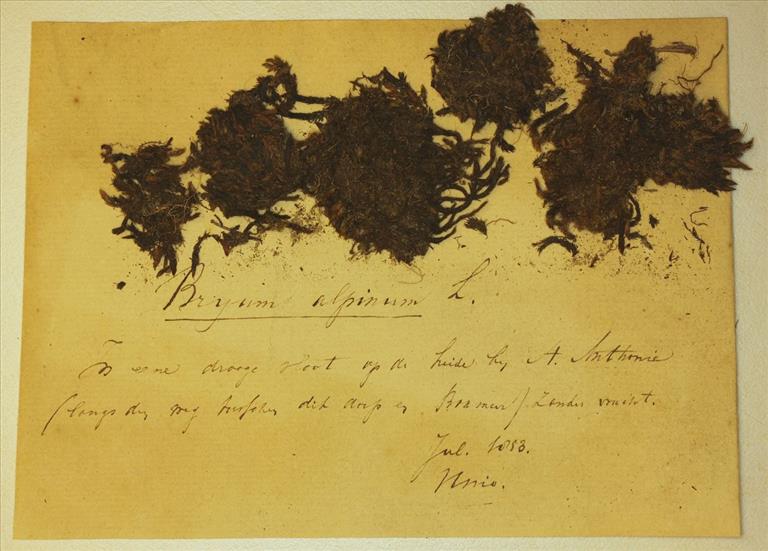 Bryum alpinum L.
In eene drooge sloot op de heide by St. Anthonie
(langs den weg tusschen dit dorp en Boxmeer) Zonder vrucht.
Jul. 1853.